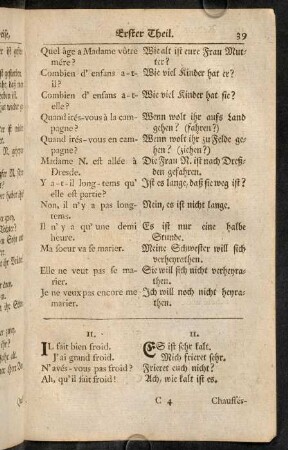 Erster Theil. 39
Quel âge a Madame vôtre Wie alt ist eure Frau Mut-
mére? ter?
Combien d' enfans a-t- Wie viel Kinder hat er?
il?
Combien d' enfans a-t- Wie viel Kinder hat sie?
elle?
Quand irés-vous à la cam- Wenn wolt ihr aufs Land
pagne? gehen? (fahren?)
Quand irés-vous en cam- Wenn wolt ihr zu Felde ge-
pagne? hen? (ziehen?)
Madame N. est allée à Die Frau N. ist nach Dreß-
Dresde. den gefahren.
Y a-t-il long-tems qu' Ist es lange, daß sie weg ist?
elle est partie?
Non, il n'y a pas long- Nein, es ist nicht lange.
tems.
Il n'y a qu'une demi Es ist nur eine halbe
heure. Stunde.
Ma sœur va se marier. Meine Schwester will sich
verheyrathen.
Elle ne veut pas se ma- Sie will sich nicht verheyra-
rier. then.
Je ne veux pas encore me Ich will noch nicht heyra-
marier. then.
II. II.
IL fait bien froid. ES ist sehr kalt.
J'ai grand froid. Mich frieret sehr.
N'avés-vous pas froid? Frieret euch nicht?
Ah, qu'il fait froid! Ach, wie kalt ist es.
C 4 Chauffés-